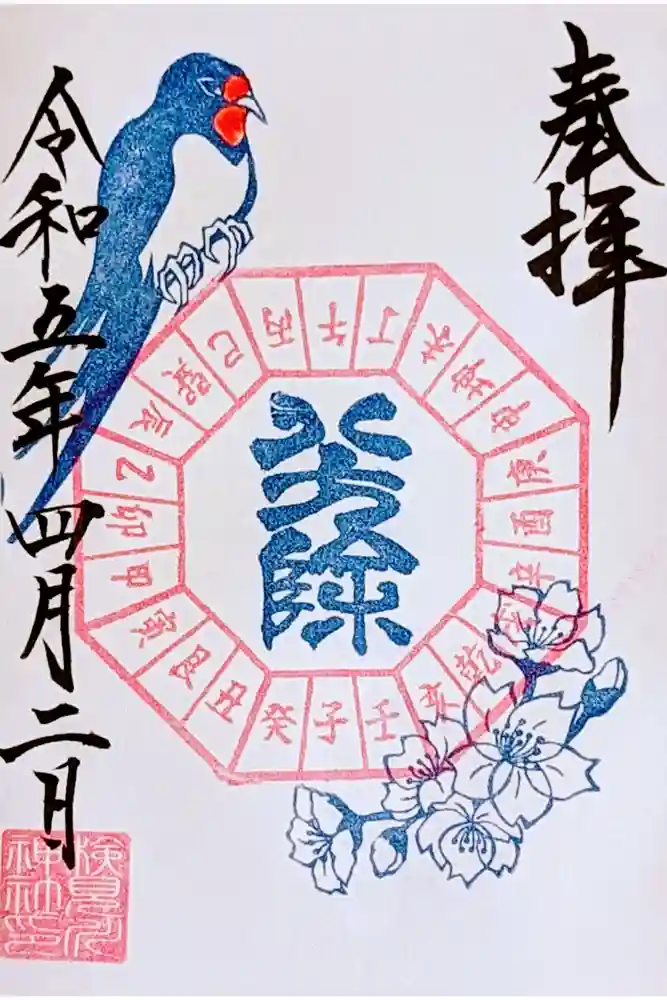 奉拝
八方除
子癸丑艮寅甲卯乙辰巽巳丙午丁未坤申庚酉辛戌乾亥壬
令和五年四月二日
検見川神社印